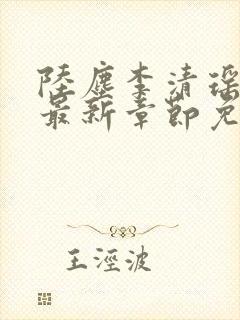 陸塵李清瑶
最新章節免
王涇波